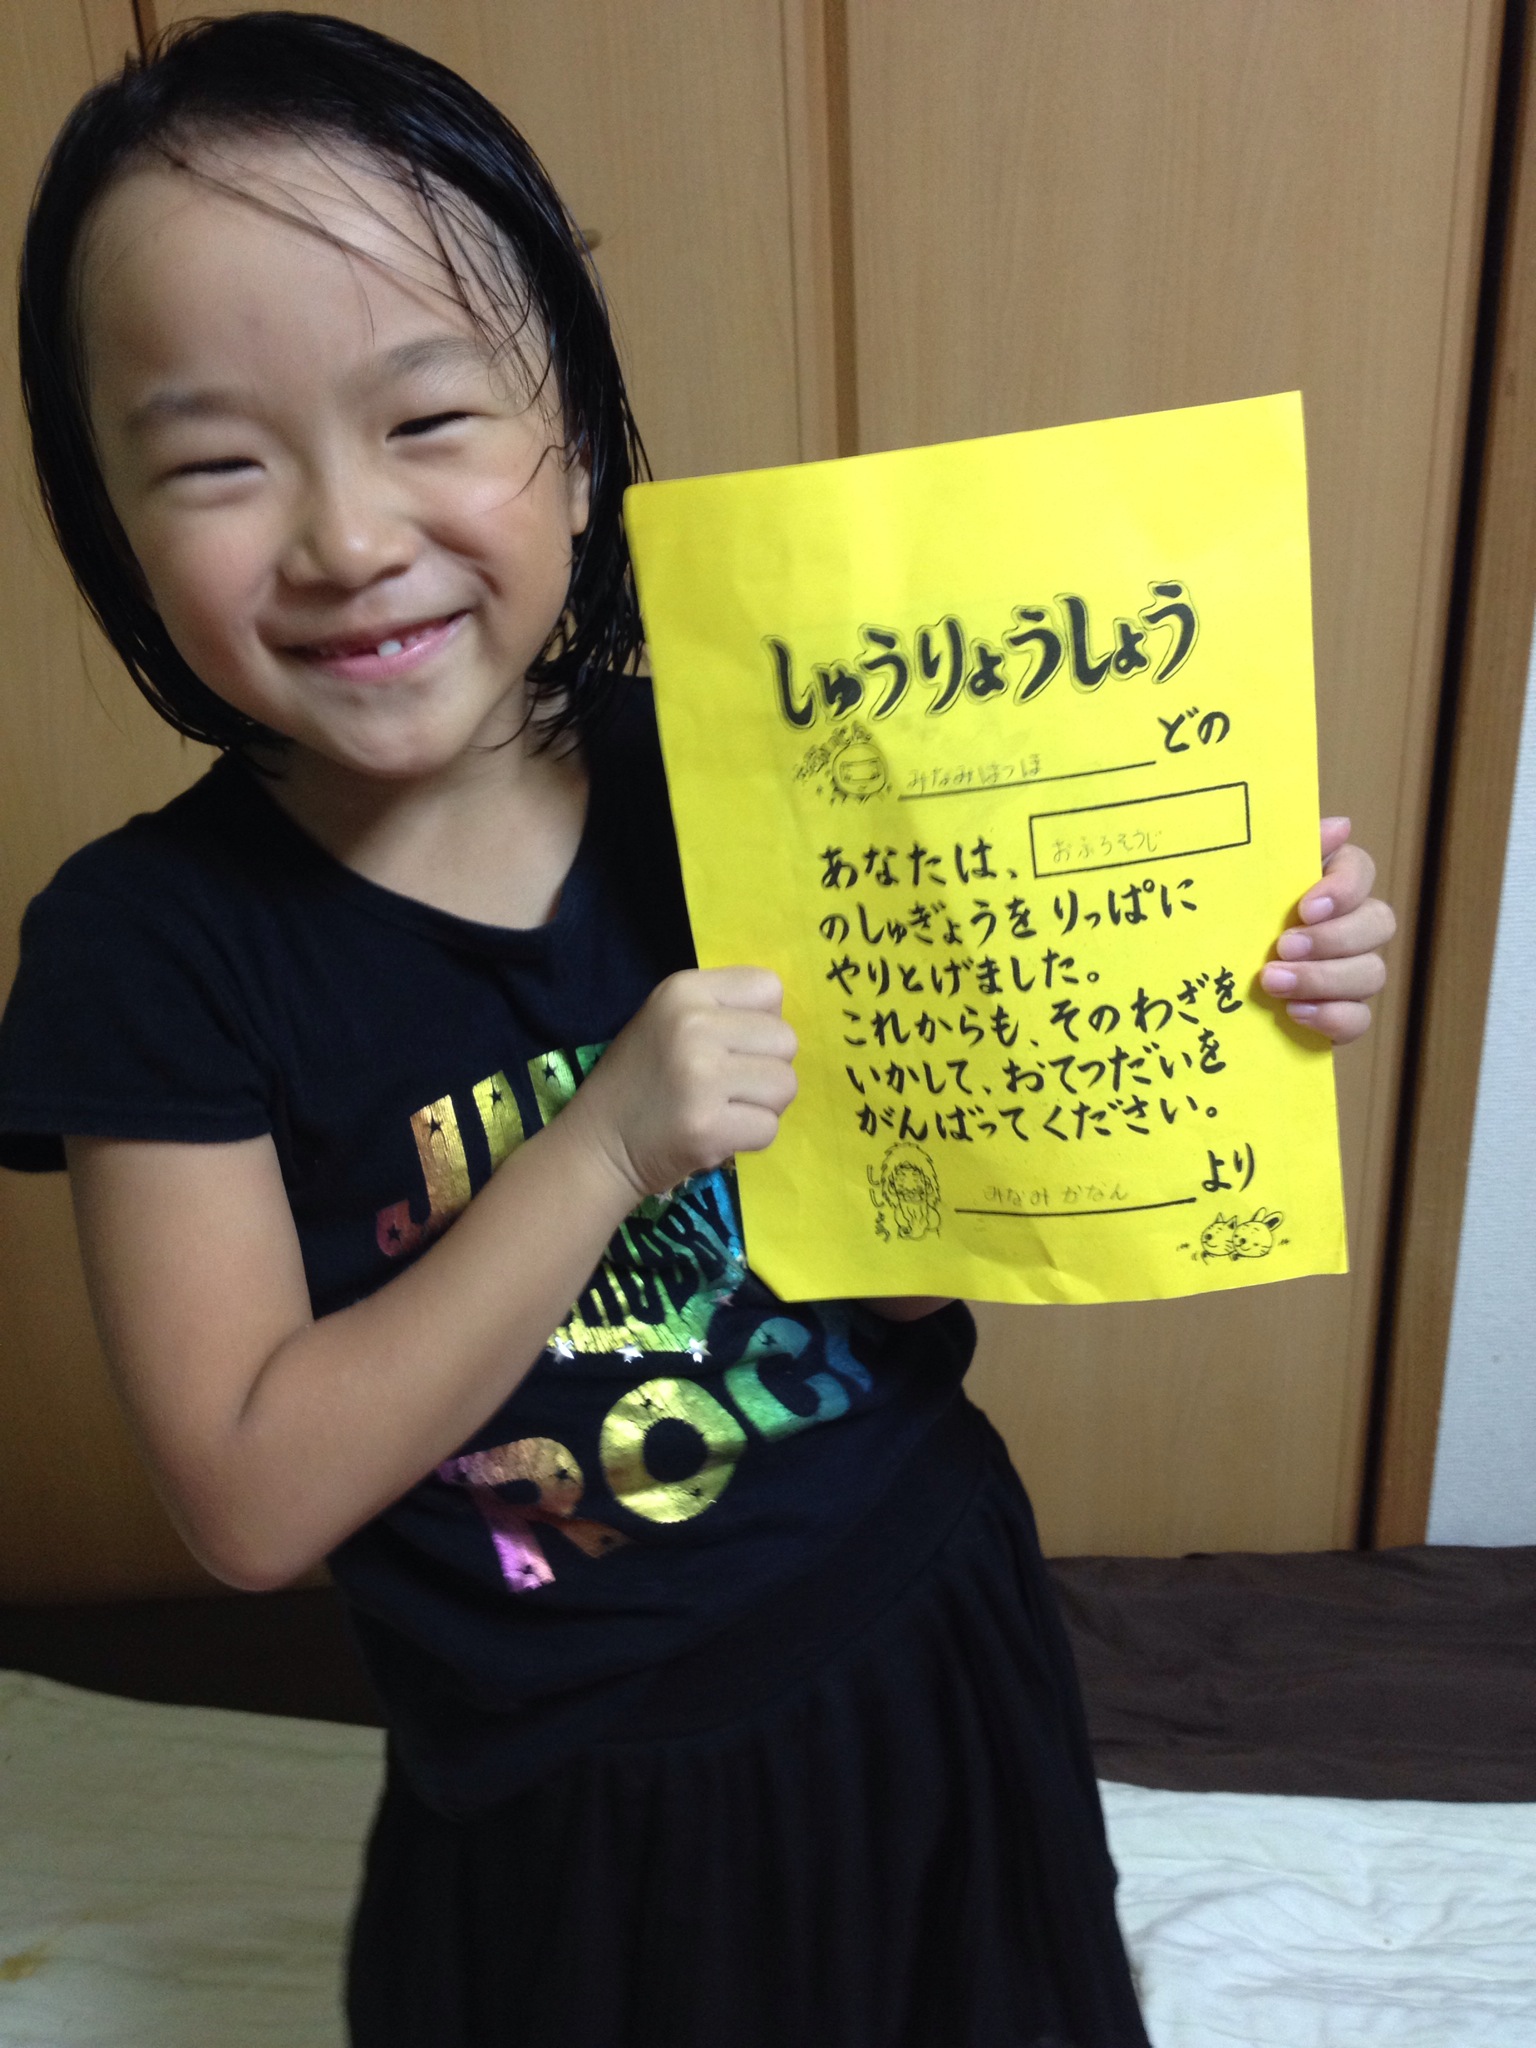 しゅうりょうしょう
みなみはつほ どの
あなたは、 おふろそうじ
のしゅぎょうを りっぱに
やりとげました。
これからも、そのわざを
いかして、おてつだいを
がんばってください。
ししょう みなみかなん より
ROCK